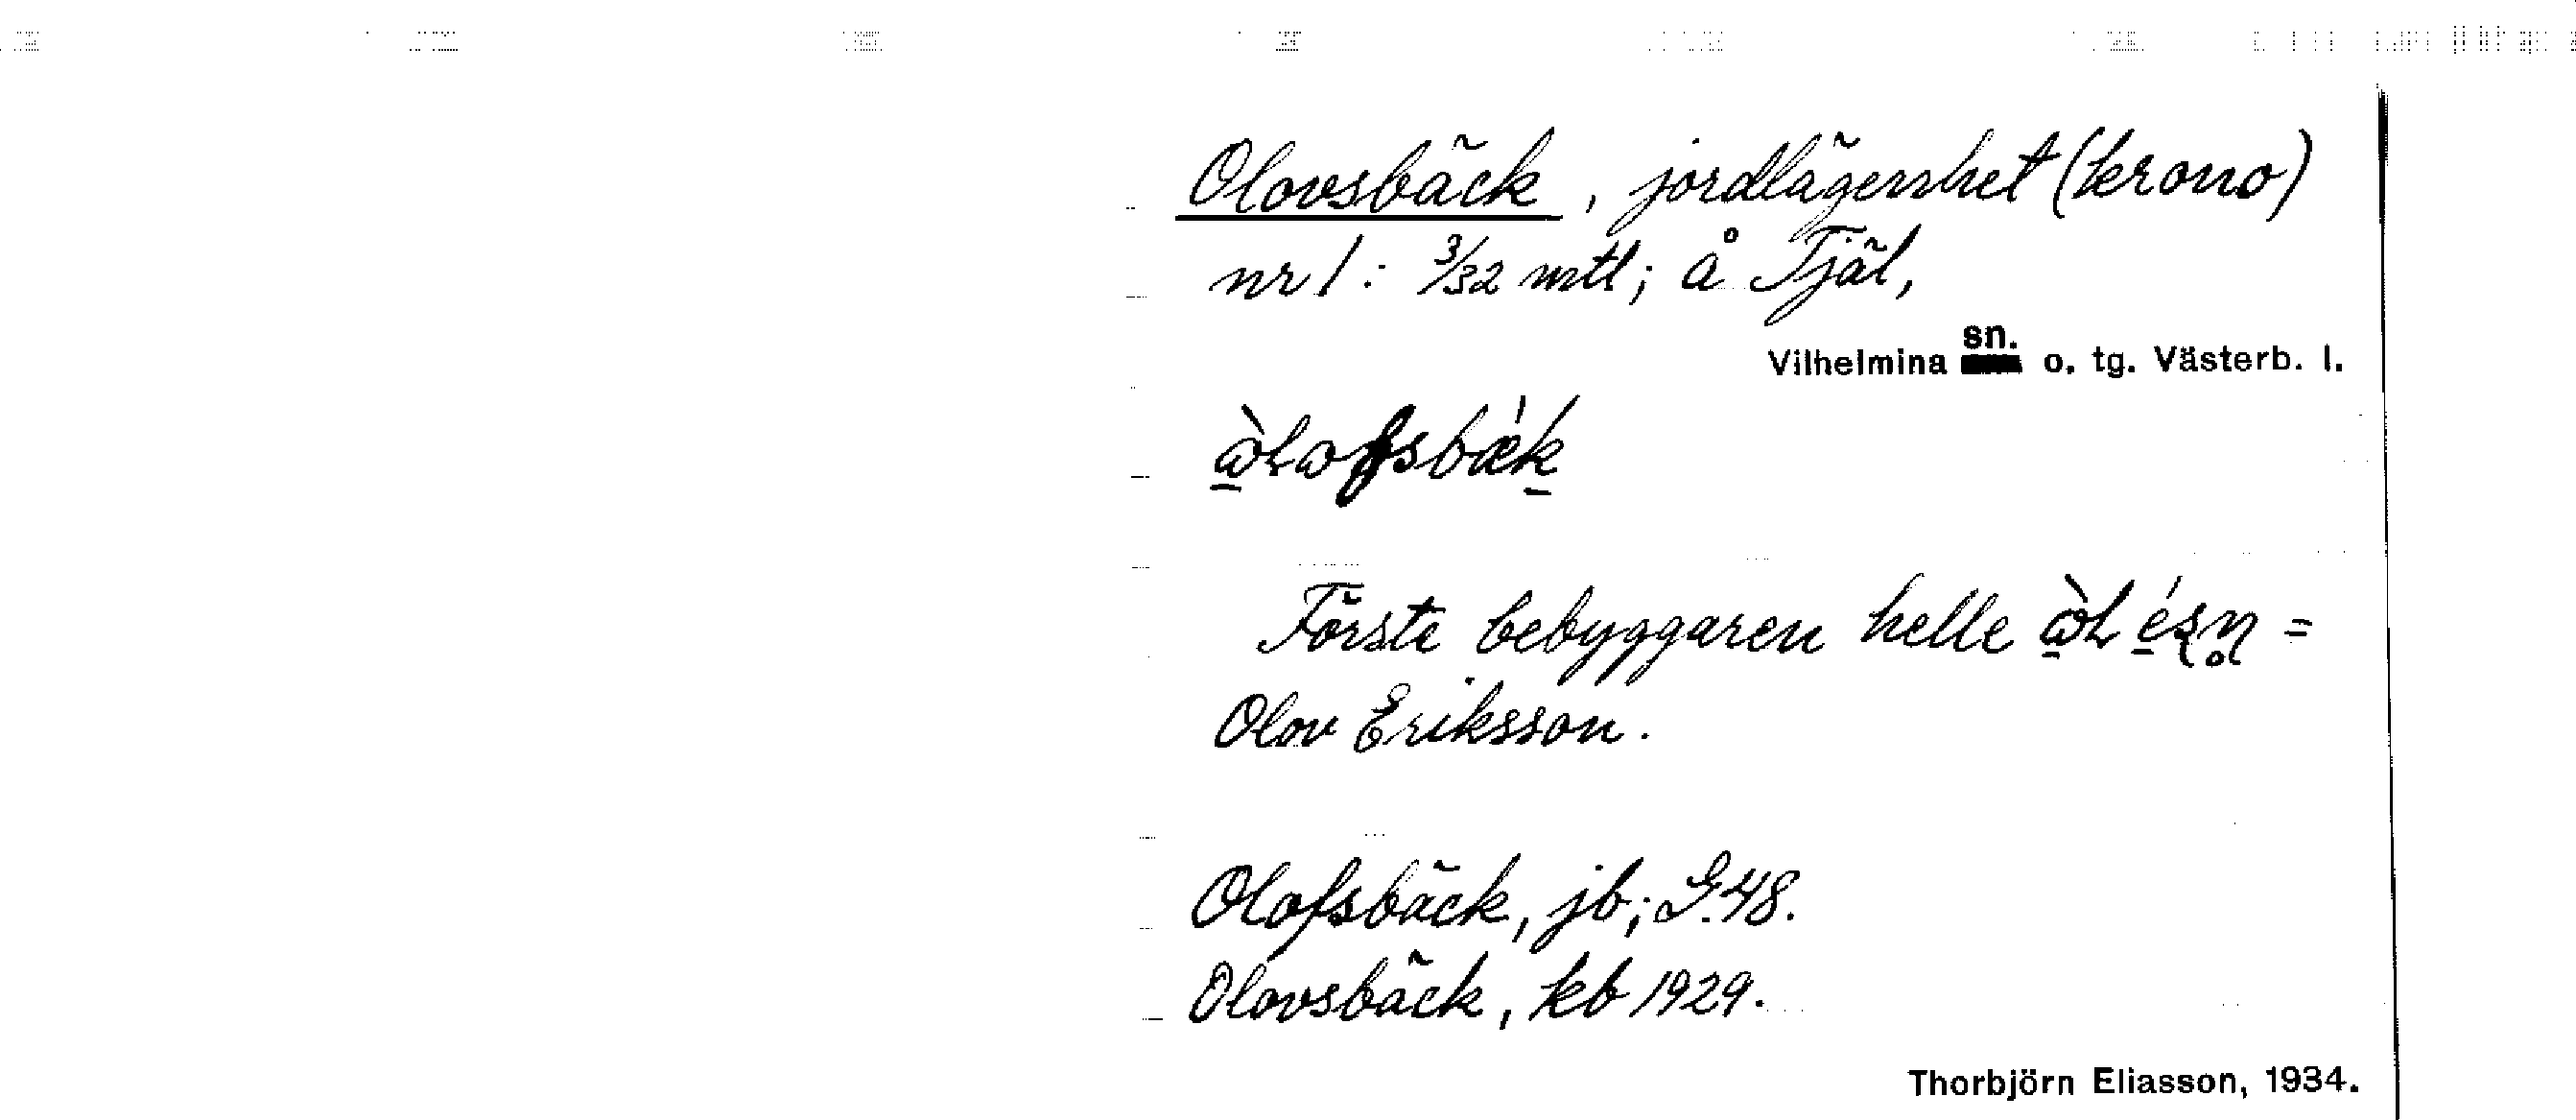 Olovsbäck, jordlägenhet (krono)
nr 1: 3/32 mtl; å Tjäl,
Vilhelmina sn. o. tg. Västerb. l.
Förste bebyggaren hette =
Olov Eriksson.
Olofsbäck, jb; G.48.
Olovsbäck, kb 1929.
Thorbjörn Eliasson, 1934.